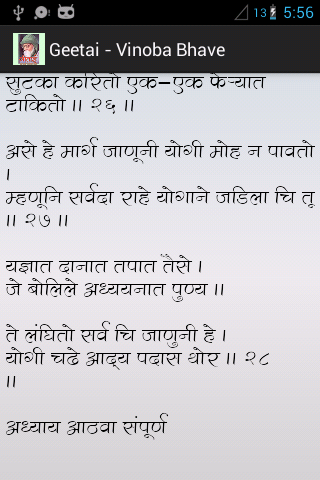 13 5:56
Geetai - Vinoba Bhave
सुटका करितो एक-एक फेऱ्यात
टाकितो ॥ २६ ॥
असे हे मार्ग जाणूनी योगी मोह न पावतो
।
म्हणूनि सर्वदा राहे योगाने जडिला चि तू
॥ २७ ॥
यज्ञात दानात तपात तैसे ।
जे बोलिले अध्ययनात पुण्य ॥
ते लंघितो सर्व चि जाणुनी हे ।
योगी चढे आद्य पदास थोर ॥ २८
॥
अध्याय आठवा संपूर्ण